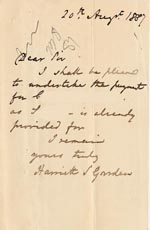 20th Augst. 1887
Dear Sir
I shall be pleased
to undertake the payment
for
as I is already
provided for
I remain
yours truly
Harriett S